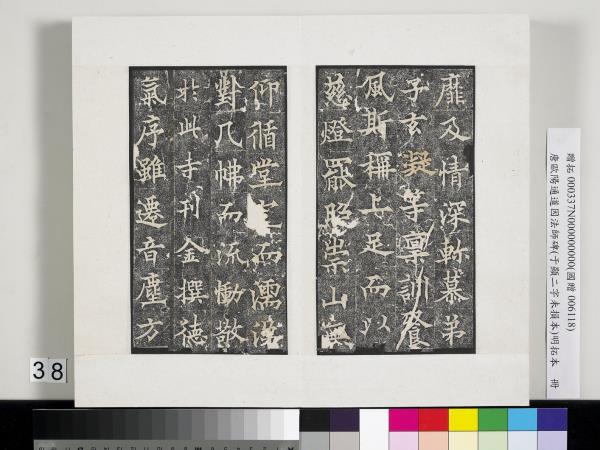 靡及情深軫慕弟
子玄凝等稟訓餐
風斯稱上足而以
慈燈罷照崇山
仰循堂而濡
對几而流慟敬
於此寺刊金撰德
氣序雖遷音塵方
贈拓 000337N000000000(國贈 006118)
唐歐陽通道因法師碑(于顯二字未損本)明拓本 冊
38